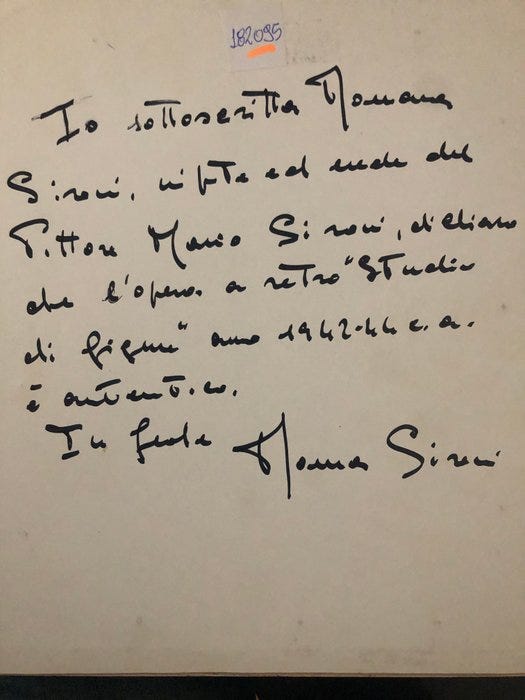 182095
Io sottoscritta Romana
Sironi, nipote ed erede del
Pittore Mario Sironi, dichiaro
che l'opera a retro "Studio
di figure" anno 1942-44 c.a.
è autentico.
In fede Romana Sironi